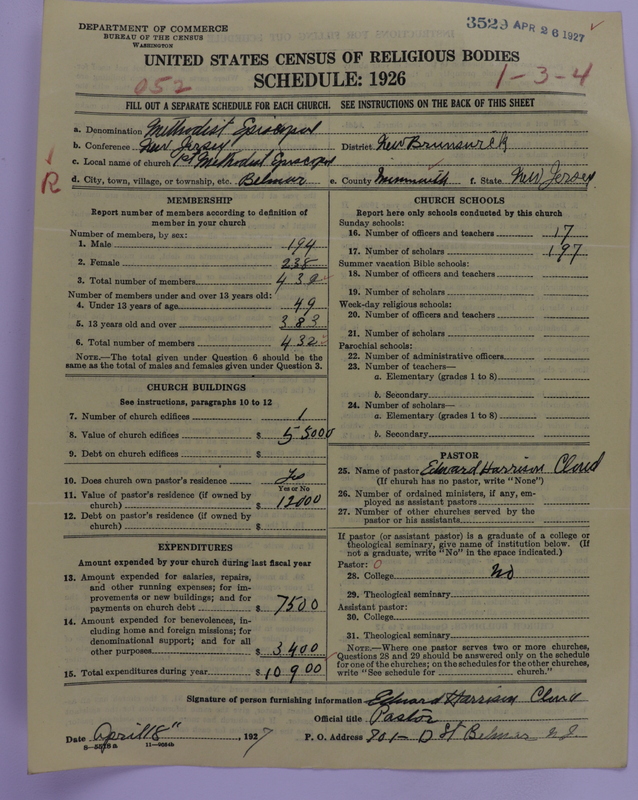 DEPARTMENT OF COMMERCE
BUREAU OF THE CENSUS
WASHINGTON
3529 APR 26 1927
UNITED STATES CENSUS OF RELIGIOUS BODIES
SCHEDULE: 1926
052
1-3-4
FILL OUT A SEPARATE SCHEDULE FOR EACH CHURCH. SEE INSTRUCTIONS ON THE BACK OF THIS SHEET
a. Denomination Methodist Episcopal
b. Conference New Jersey District New Brunswick
c. Local name of church 1st Methodist Episcopal
R
d. City, town, village, or township, etc. Belmar e. County Monmouth f. State New Jersey
MEMBERSHIP
Report number of members according to definition of member in your church
Number of members, by sex:
1. Male 194
2. Female 238
3. Total number of members 432
Number of members under and over 13 years old:
4. Under 13 years of age 49
5. 13 years old and over 383
6. Total number of members 432
NOTE.—The total given under Question 6 should be the same as the total of males and females given under Question 3.
CHURCH BUILDINGS
See instructions, paragraphs 10 to 12
7. Number of church edifices 1
8. Value of church edifices $ 55000
9. Debt on church edifices $
10. Does church own pastor's residence? Yes
Yes or No
11. Value of pastor's residence (if owned by church) $ 12000
12. Debt on pastor's residence (if owned by church) $
EXPENDITURES
Amount expended by your church during last fiscal year
13. Amount expended for salaries, repairs, and other running expenses; for improvements or new buildings; and for payments on church debt $ 7500
14. Amount expended for benevolences, including home and foreign missions; for denominational support; and for all other purposes $ 3400
15. Total expenditures during year $ 10900
CHURCH SCHOOLS
Report here only schools conducted by this church
Sunday schools:
16. Number of officers and teachers 17
17. Number of scholars 197
Summer vacation Bible schools:
18. Number of officers and teachers
19. Number of scholars
Week-day religious schools:
20. Number of officers and teachers
21. Number of scholars
Parochial schools:
22. Number of administrative officers
23. Number of teachers—
a. Elementary (grades 1 to 8)
b. Secondary
24. Number of scholars—
a. Elementary (grades 1 to 8)
b. Secondary
PASTOR
25. Name of pastor Edward Harrison Cloud
(If church has no pastor, write "None")
26. Number of ordained ministers, if any, employed as assistant pastors
27. Number of other churches served by the pastor or his assistants
If pastor (or assistant pastor) is a graduate of a college or theological seminary, give name of institution below. (If not a graduate, write "No" in the space indicated.)
Pastor: 0
28. College No
29. Theological seminary
Assistant pastor:
30. College
31. Theological seminary
NOTE.—Where one pastor serves two or more churches, Questions 28 and 29 should be answered only on the schedule for one of the churches; on the schedules for the other churches, write "See schedule for church."
Signature of person furnishing information Edward Harrison Cloud
Official title Pastor
Date April 18", 1927 P. O. Address 801- D St Belmar N.J.
8-5578a 11-9084b